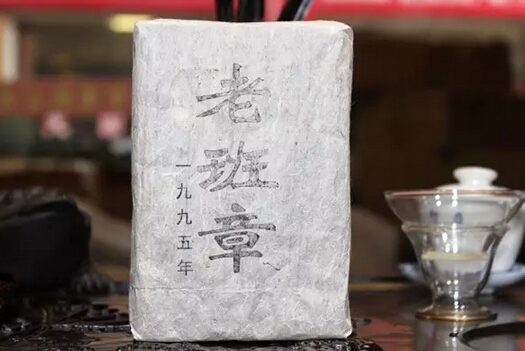 老班章
一九九五年